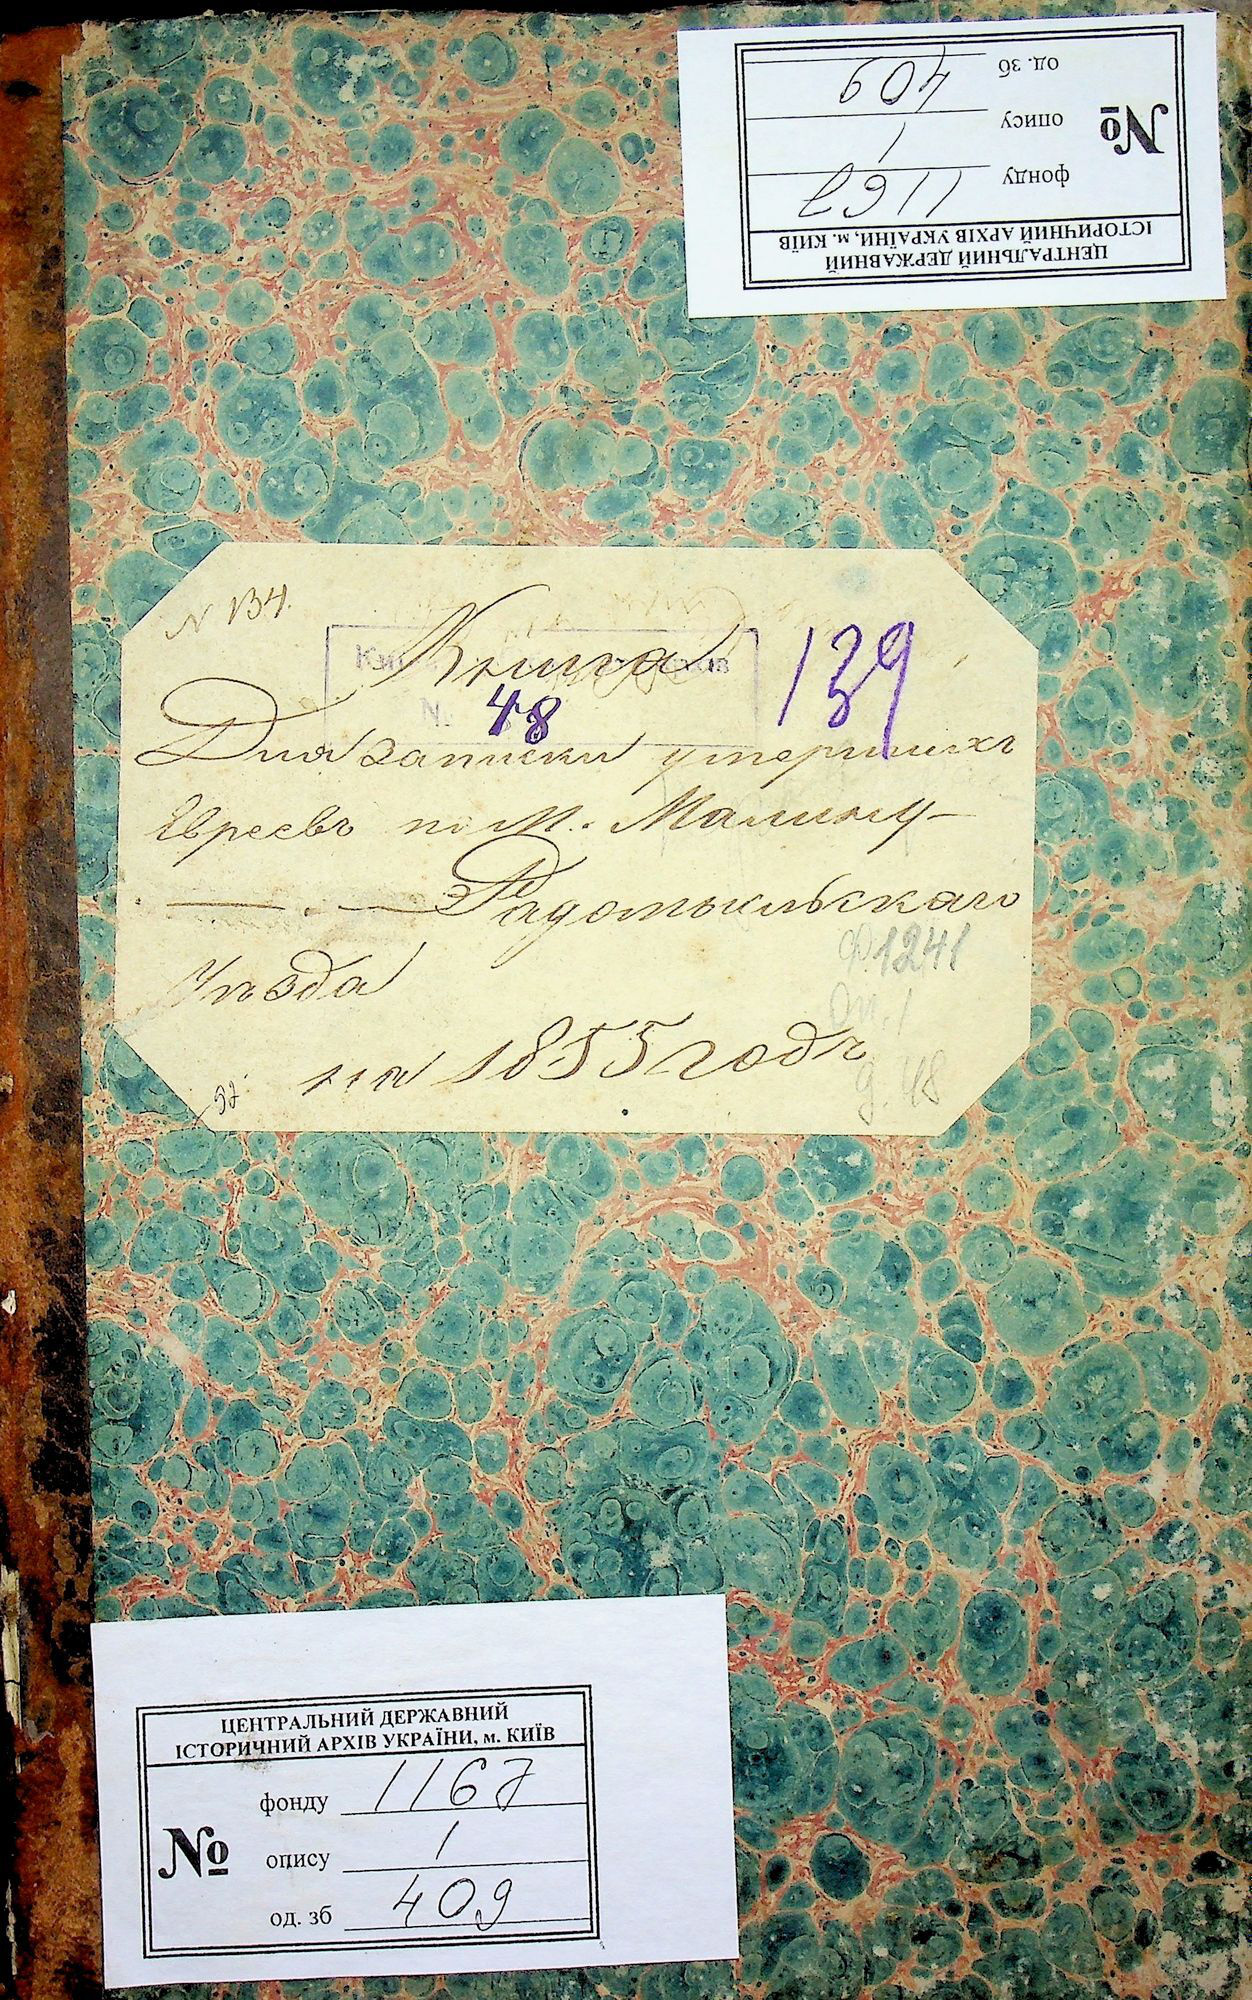 од. зб 409
опису 1
фонду 1167
№
ЦЕНТРАЛЬНИЙ ДЕРЖАВНИЙ
ІСТОРИЧНИЙ АРХІВ УКРАЇНИ, м. КИЇВ
N 134.
Книга
139
N. 48
Для записки умершихъ
Евреевъ по М. Малину
Радомысльскаго
Уѣзда
на 1855 годъ
ф. 1241
оп. 1
д. 48
ЦЕНТРАЛЬНИЙ ДЕРЖАВНИЙ
ІСТОРИЧНИЙ АРХІВ УКРАЇНИ, м. КИЇВ
№
фонду 1167
опису 1
од. зб 409